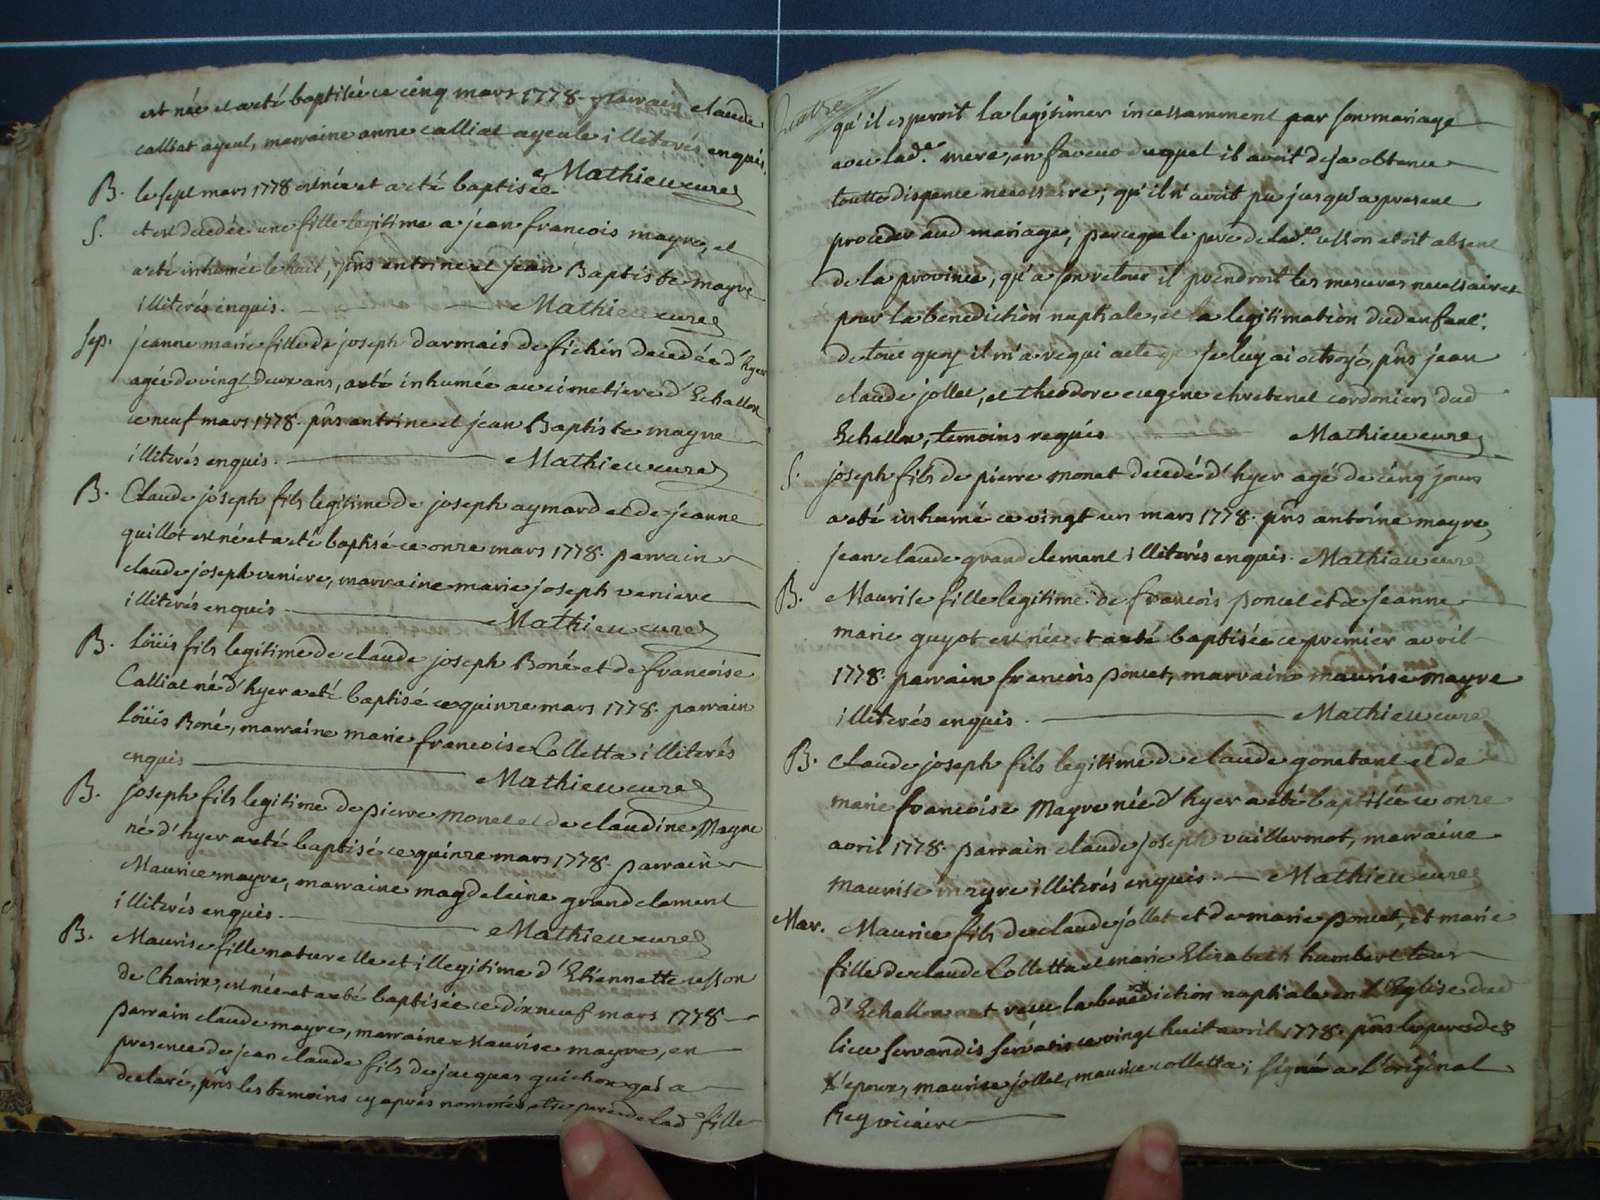 est née et a eté baptisée ce cinq mars 1778. parrain claude
calliat ayeul, marraine anne calliat ayeule illiterés enquis.
Mathieu curé
B. le sept mars 1778 est née et a eté baptisée
S. et est decedée une fille legitime a jean francois mayre, et
a eté inhumée le huit, pñs antoine et jean Baptiste mayre
illiterés enquis. Mathieu curé
Sep. jeanne marie fille de joseph darmais de fichin decedée d'hyer
agée de vingt deux ans, a eté inhumée au cimetiere d'Echallon
ce neuf mars 1778. pñs antoine et jean Baptiste mayre
illiterés enquis. Mathieu curé
B. Claude joseph fils legitime de joseph aymard et de jeanne
quillot est né et a eté baptisé ce onze mars 1778. parrain
claude joseph veniere, marraine marie joseph veniere
illiterés enquis Mathieu curé
B. Loüis fils legitime de claude joseph Boné et de francoise
Calliat né d'hyer a eté baptisé ce quinze mars 1778. parrain
Loüis Boné, marraine marie francoise Colletta illiterés
enquis Mathieu curé
B. joseph fils legitime de pierre monet et de claudine Mayre
né d'hyer a eté baptisé ce quinze mars 1778. parrain
Maurice mayre, marraine magdeleine grandclement
illiterés enquis. Mathieu curé
B. Maurise fille naturelle et illegitime d'Etiennette usson
de Charix, est née et a eté baptisée ce dixneuf mars 1778
parrain claude mayre, marraine Maurise mayre, en
presence de jean claude fils de jacques guichon qui a
declaré, pñs les temoins cy aprés nommés, etre pere de lad fille
qu'il esperoit la legitimer incessamment par son mariage
avec lad.e mere, en faveur duquel il avoit deja obtenu
toutte dispence necessaire; qu'il n'avoit pu jusqu'a present
proceder aud mariage, parceque le pere de lad.e usson etoit absent
de la province, qu'a son retour il prendroit les mesures necessaires
pour la benediction nuptiale, et la legitimation dud enfant.
de tout quoy il m'a requi acte que je luy ai octroyé, pñs jean
claude jollet, et theodore eugene chretenet cordoniers dud
Echallon, temoins requis Mathieu curé
S. joseph fils de pierre monet decedé d'hyer agé de cinq jours
a eté inhumé ce vingt un mars 1778. pñs antoine mayre,
jean claude grandclement illiterés enquis. Mathieu curé
B. Maurise fille legitime de francois poncet et de jeanne
marie guyot est née et a eté baptisée ce premier avril
1778. parrain francois poncet, marraine maurise mayre
illiterés enquis. Mathieu curé
B. Claude joseph fils legitime de claude gonetant et de
marie francoise Mayre née d'hyer a eté baptisée ce onze
avril 1778. parrain claude joseph vuillermot, marraine
maurise mayre illiterés enquis. Mathieu curé
Mar. Maurice fils de claude jollet et de marie poncet, et marie
fille de claude Colletta et marie Elizabeth humbert tous
d'Echallon ont recu la benediction nuptiale en l'Eglise dud
lieu servandis servatis ce vingt huit avril 1778. pñs les peres des
epoux, maurise jollet, maurice colletta; signé a l'original
Rey vicaire